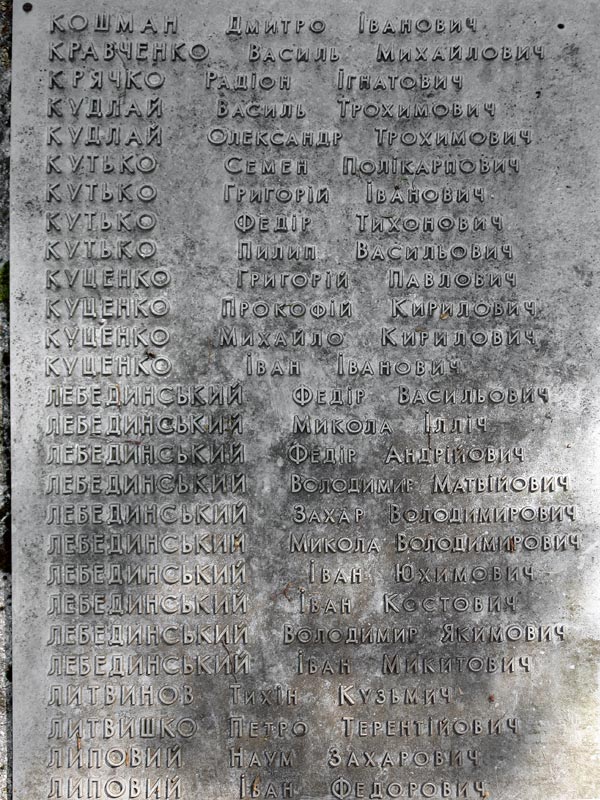 КОШМАН Дмитро Іванович
КРАВЧЕНКО Василь Михайлович
КРЯЧКО Радіон Ігнатович
КУДЛАЙ Василь Трохимович
КУДЛАЙ Олександр Трохимович
КУТЬКО Семен Полікарпович
КУТЬКО Григорій Іванович
КУТЬКО Федір Тихонович
КУТЬКО Пилип Васильович
КУЦЕНКО Григорій Павлович
КУЦЕНКО Прокофій Кирилович
КУЦЕНКО Михайло Кирилович
КУЦЕНКО Іван Іванович
ЛЕБЕДИНСЬКИЙ Федір Васильович
ЛЕБЕДИНСЬКИЙ Микола Ілліч
ЛЕБЕДИНСЬКИЙ Федір Андрійович
ЛЕБЕДИНСЬКИЙ Володимир Матвійович
ЛЕБЕДИНСЬКИЙ Захар Володимирович
ЛЕБЕДИНСЬКИЙ Микола Володимирович
ЛЕБЕДИНСЬКИЙ Іван Юхимович
ЛЕБЕДИНСЬКИЙ Іван Костович
ЛЕБЕДИНСЬКИЙ Володимир Якимович
ЛЕБЕДИНСЬКИЙ Іван Микитович
ЛИТВИНОВ Тихін Кузьмич
ЛИТВИШКО Петро Терентійович
ЛИПОВИЙ Наум Захарович
ЛИПОВИЙ Іван Федорович